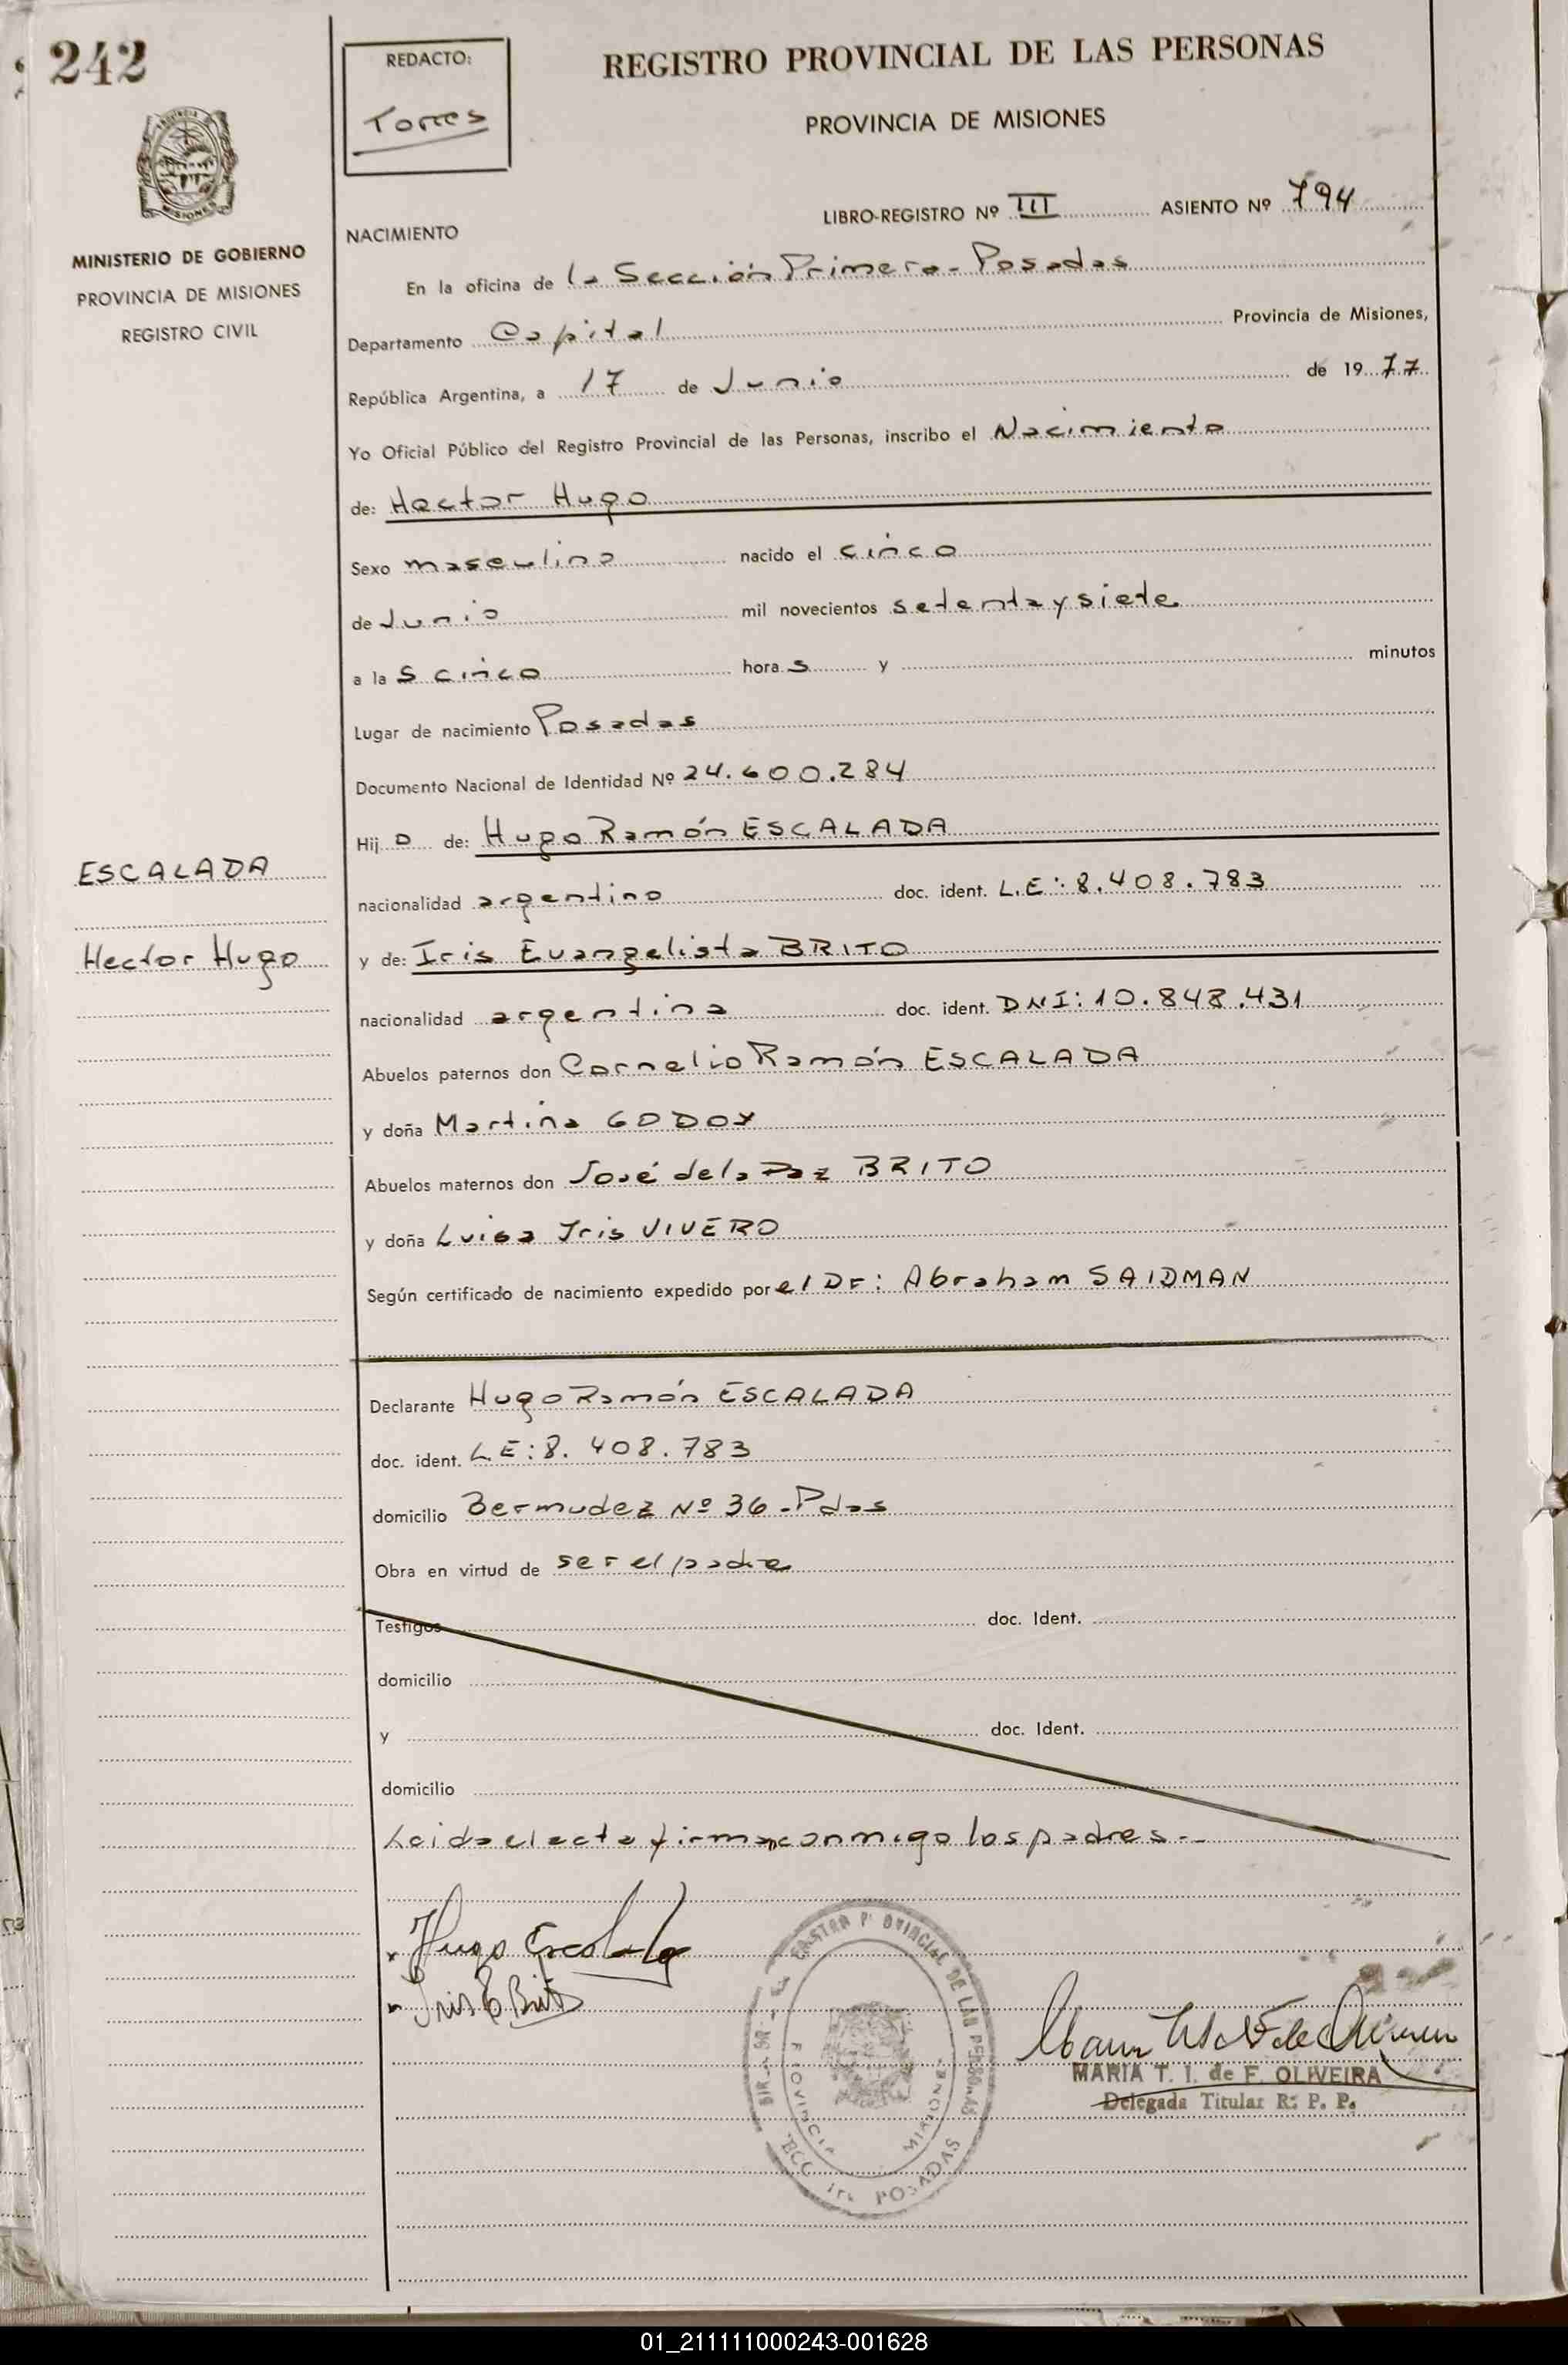 242
REDACTO:
Torres
REGISTRO PROVINCIAL DE LAS PERSONAS
PROVINCIA DE MISIONES
MINISTERIO DE GOBIERNO
PROVINCIA DE MISIONES
REGISTRO CIVIL
LIBRO-REGISTRO Nº III ASIENTO Nº 794
NACIMIENTO
En la oficina de la Sección Primera - Posadas
Departamento Capital Provincia de Misiones,
República Argentina, a 17 de Junio de 1977
Yo Oficial Público del Registro Provincial de las Personas, inscribo el Nacimiento
de: Hector Hugo
Sexo masculino nacido el cinco
de Junio mil novecientos setenta y siete
a las cinco horas y minutos
Lugar de nacimiento Posadas
Documento Nacional de Identidad Nº 24.600.284
Hijo de: Hugo Ramón ESCALADA
nacionalidad argentino doc. ident. L.E: 8.408.783
ESCALADA
Hector Hugo
y de: Iris Evangelista BRITO
nacionalidad argentina doc. ident. DNI: 10.848.431
Abuelos paternos don Cornelio Ramón ESCALADA
y doña Martina GODOY
Abuelos maternos don José de la Paz BRITO
y doña Luisa Iris VIVERO
Según certificado de nacimiento expedido por el Dr: Abraham SAIDMAN
Declarante Hugo Ramón ESCALADA
doc. ident. L.E: 8.408.783
domicilio Bermudez Nº 36 - Pdas
Obra en virtud de ser el padre
Testigos doc. Ident.
domicilio
y doc. Ident.
domicilio
Leida el acta firman conmigo los padres.-
Hugo Escalada
Iris E Brito
PROVINCIAL DE LAS PERSONAS
PROVINCIA MISIONES
POSADAS
MARIA T. I. de F. OLIVEIRA
Delegada Titular R. P. P.
01_211111000243-001628